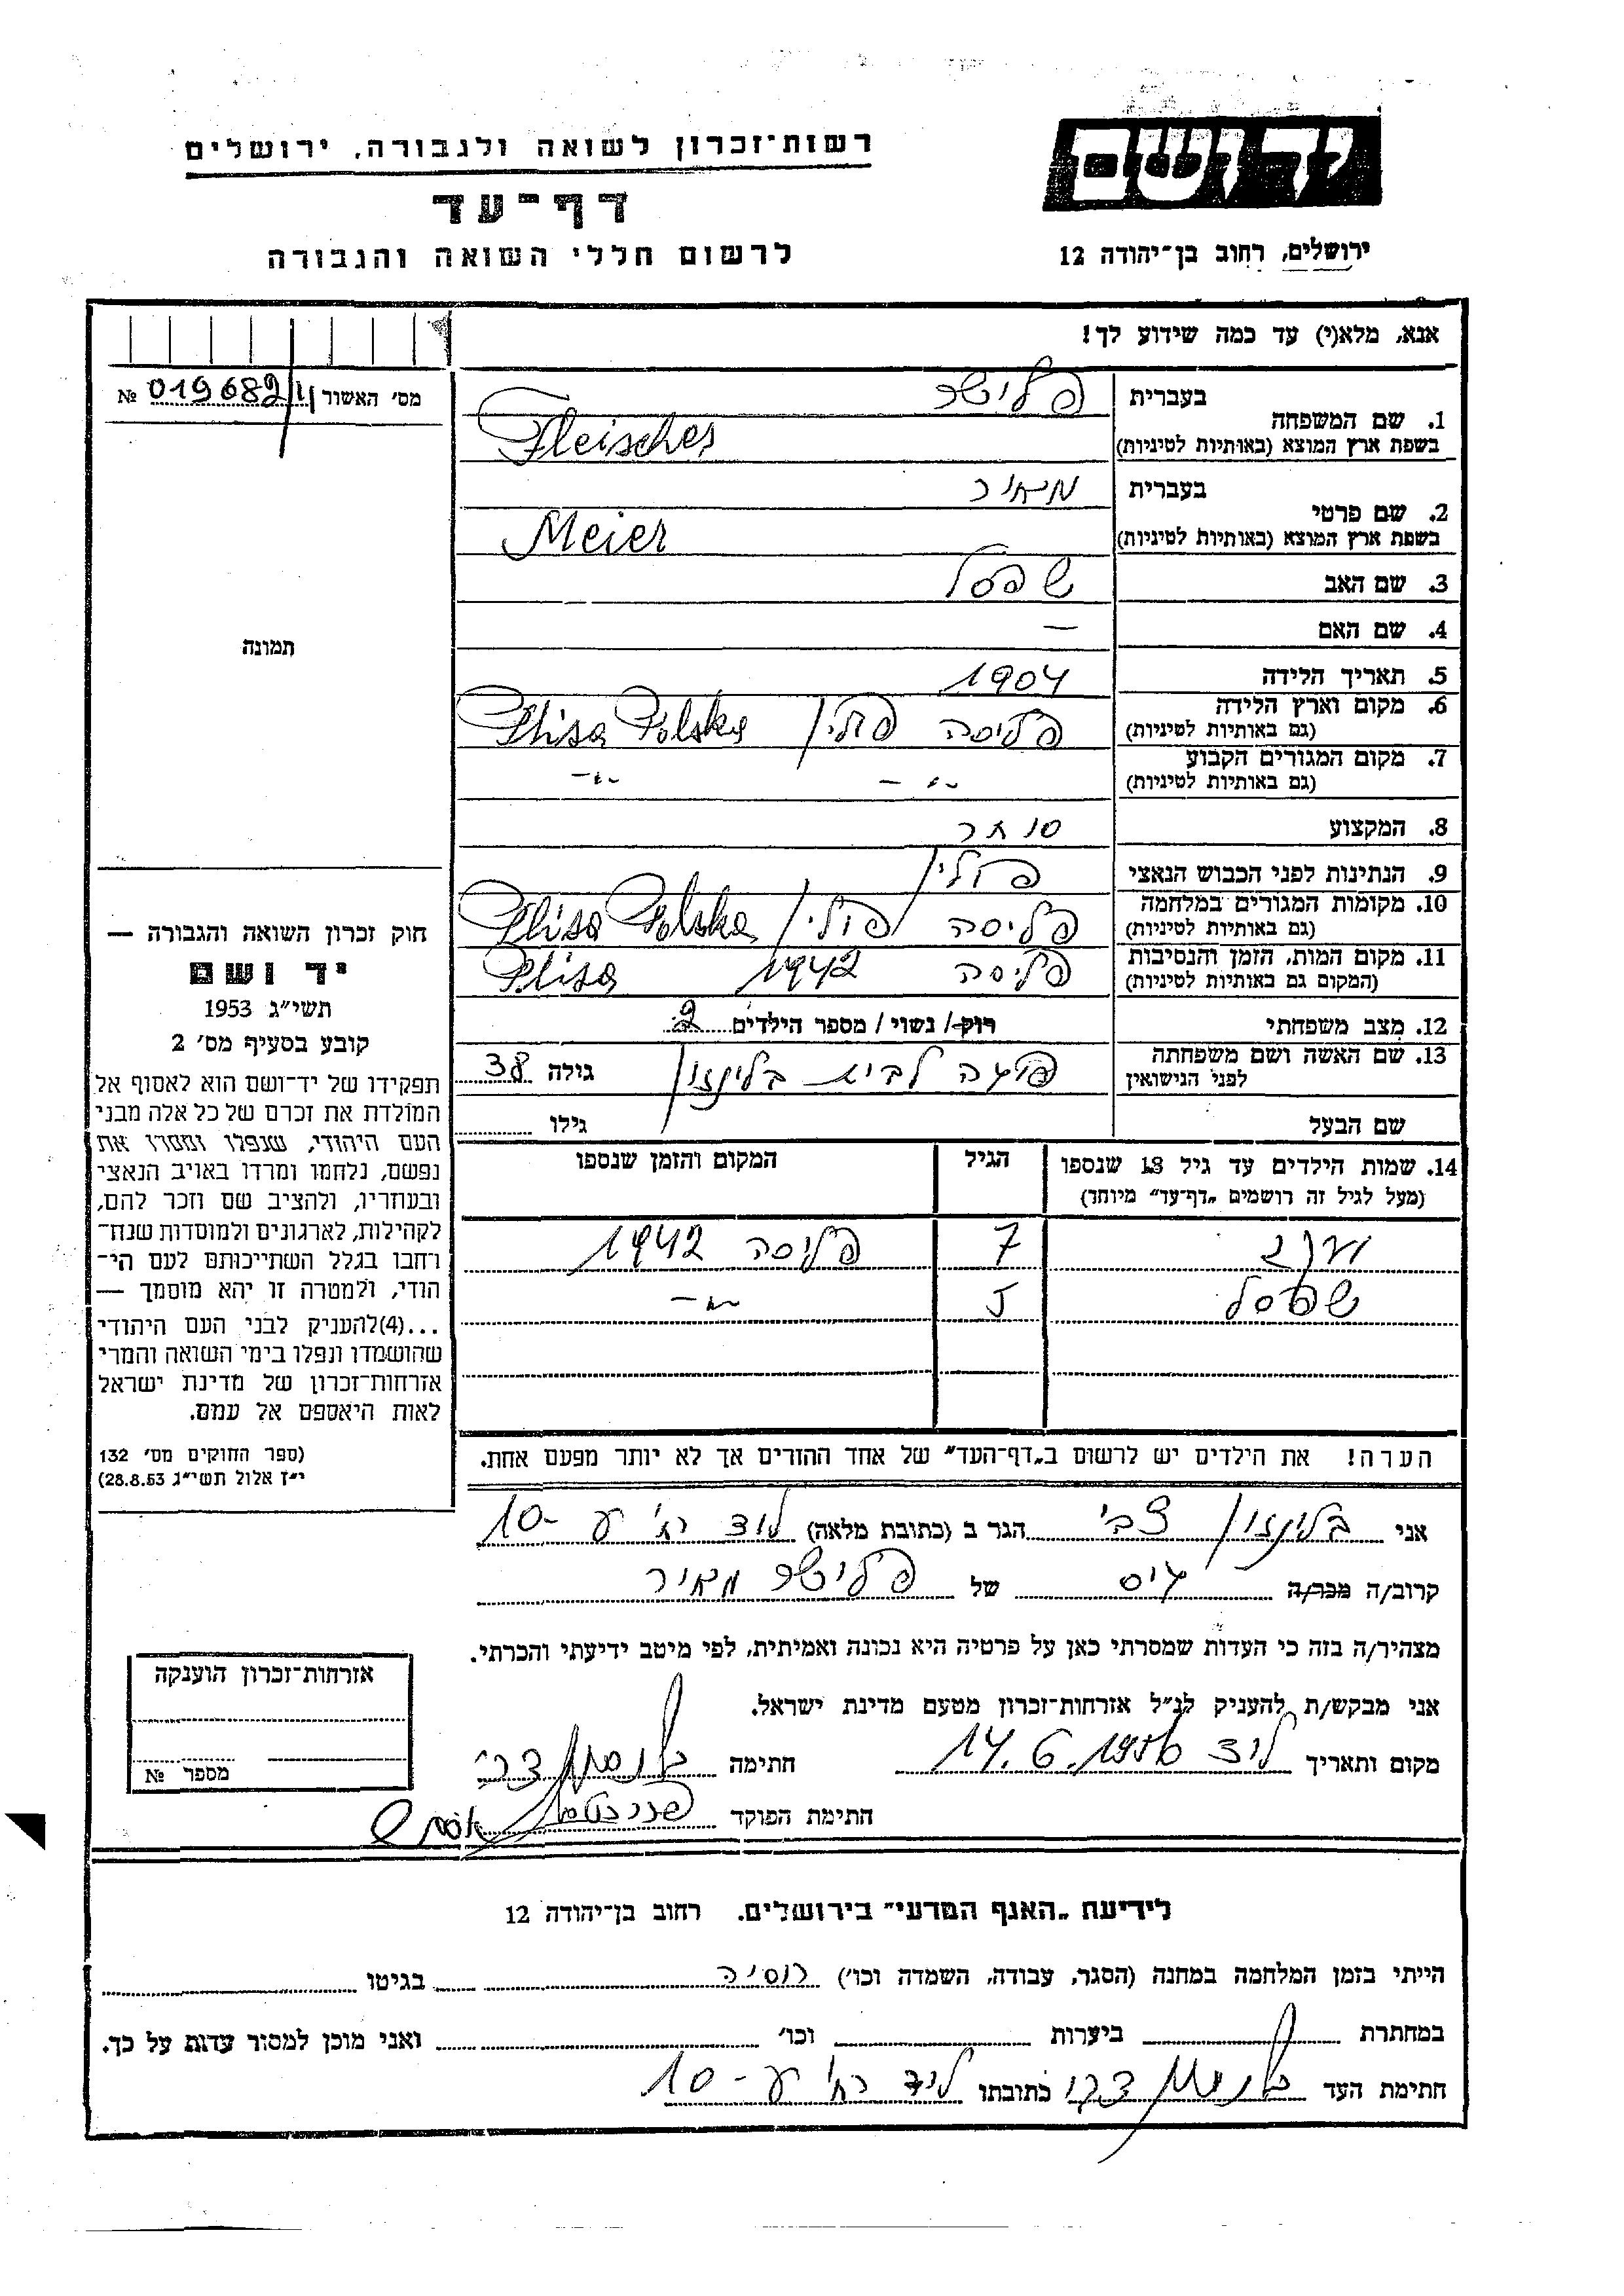 יד ושם
ירושלים, רחוב בן־יהודה 12
רשות־זכרון לשואה ולגבורה, ירושלים
דף־עד
לרשום חללי השואה והגבורה
אנא, מלא(י) עד כמה שידוע לך!
מס' האשור № 019682/11
1. שם המשפחה
בעברית פלישר
בשפת ארץ המוצא (באותיות לטיניות) Fleischer
2. שם פרטי
בעברית מאיר
בשפת ארץ המוצא (באותיות לטיניות) Meier
3. שם האב שפסל
4. שם האם —
5. תאריך הלידה 1904
6. מקום וארץ הלידה (גם באותיות לטיניות) פליסה פולין Plisa Polska
7. מקום המגורים הקבוע (גם באותיות לטיניות) -"- -"-
8. המקצוע סוחר
9. הנתינות לפני הכבוש הנאצי פולין
10. מקומות המגורים במלחמה (גם באותיות לטיניות) פליסה פולין Plisa Polska
11. מקום המות, הזמן והנסיבות (המקום גם באותיות לטיניות) פליסה 1942 Plisa
12. מצב משפחתי רוק/ נשוי/ מספר הילדים 2
13. שם האשה ושם משפחתה לפני הנישואין לבית בלינזון גילה 38
שם הבעל גילו
14. שמות הילדים עד גיל 18 שנספו (מעל לגיל זה רושמים „דף־עד" מיוחד) הגיל המקום והזמן שנספו
7 פליסה 1942
שפסל 5 -"-
הערה! את הילדים יש לרשום ב„דף־העד" של אחד ההורים אך לא יותר מפעם אחת.
תמונה
חוק זכרון השואה והגבורה —
יד ושם
תשי"ג 1953
קובע בסעיף מס' 2
תפקידו של יד־ושם הוא לאסוף אל
המולדת את זכרם של כל אלה מבני
העם היהודי, שנפלו ומסרו את
נפשם, נלחמו ומרדו באויב הנאצי
ובעוזריו, ולהציב שם וזכר להם,
לקהילות, לארגונים ולמוסדות שנח־
רחבו בגלל השתייכותם לעם הי־
הודי, ולמטרה זו יהא מוסמך —
...(4)להעניק לבני העם היהודי
שהושמדו ונפלו בימי השואה והמרי
אזרחות־זכרון של מדינת ישראל
לאות היאספם אל עמם.
(ספר החוקים מס' 132
י"ז אלול תשי"ג 28.8.53)
אני בלינזון צבי הגר ב (כתובת מלאה) לוד רח' ע -10
קרוב/ה מכר/ה גיס של פלישר מאיר
מצהיר/ה בזה כי העדות שמסרתי כאן על פרטיה היא נכונה ואמיתית, לפי מיטב ידיעתי והכרתי.
אני מבקש/ת להעניק לנ"ל אזרחות־זכרון מטעם מדינת ישראל.
מקום ותאריך לוד 14.6.1956 חתימה בלינזון צבי
חתימת הפוקד
אזרחות־זכרון הוענקה
מספר №
לידיעת „האגף המדעי" בירושלים. רחוב בן־יהודה 12
הייתי בזמן המלחמה במחנה (הסגר, עבודה, השמדה וכו') רוסיה בגיטו
במחתרת ביערות וכו' ואני מוכן למסור עדות על כך.
חתימת העד בלינזון צבי כתובתו לוד רח' ע -10